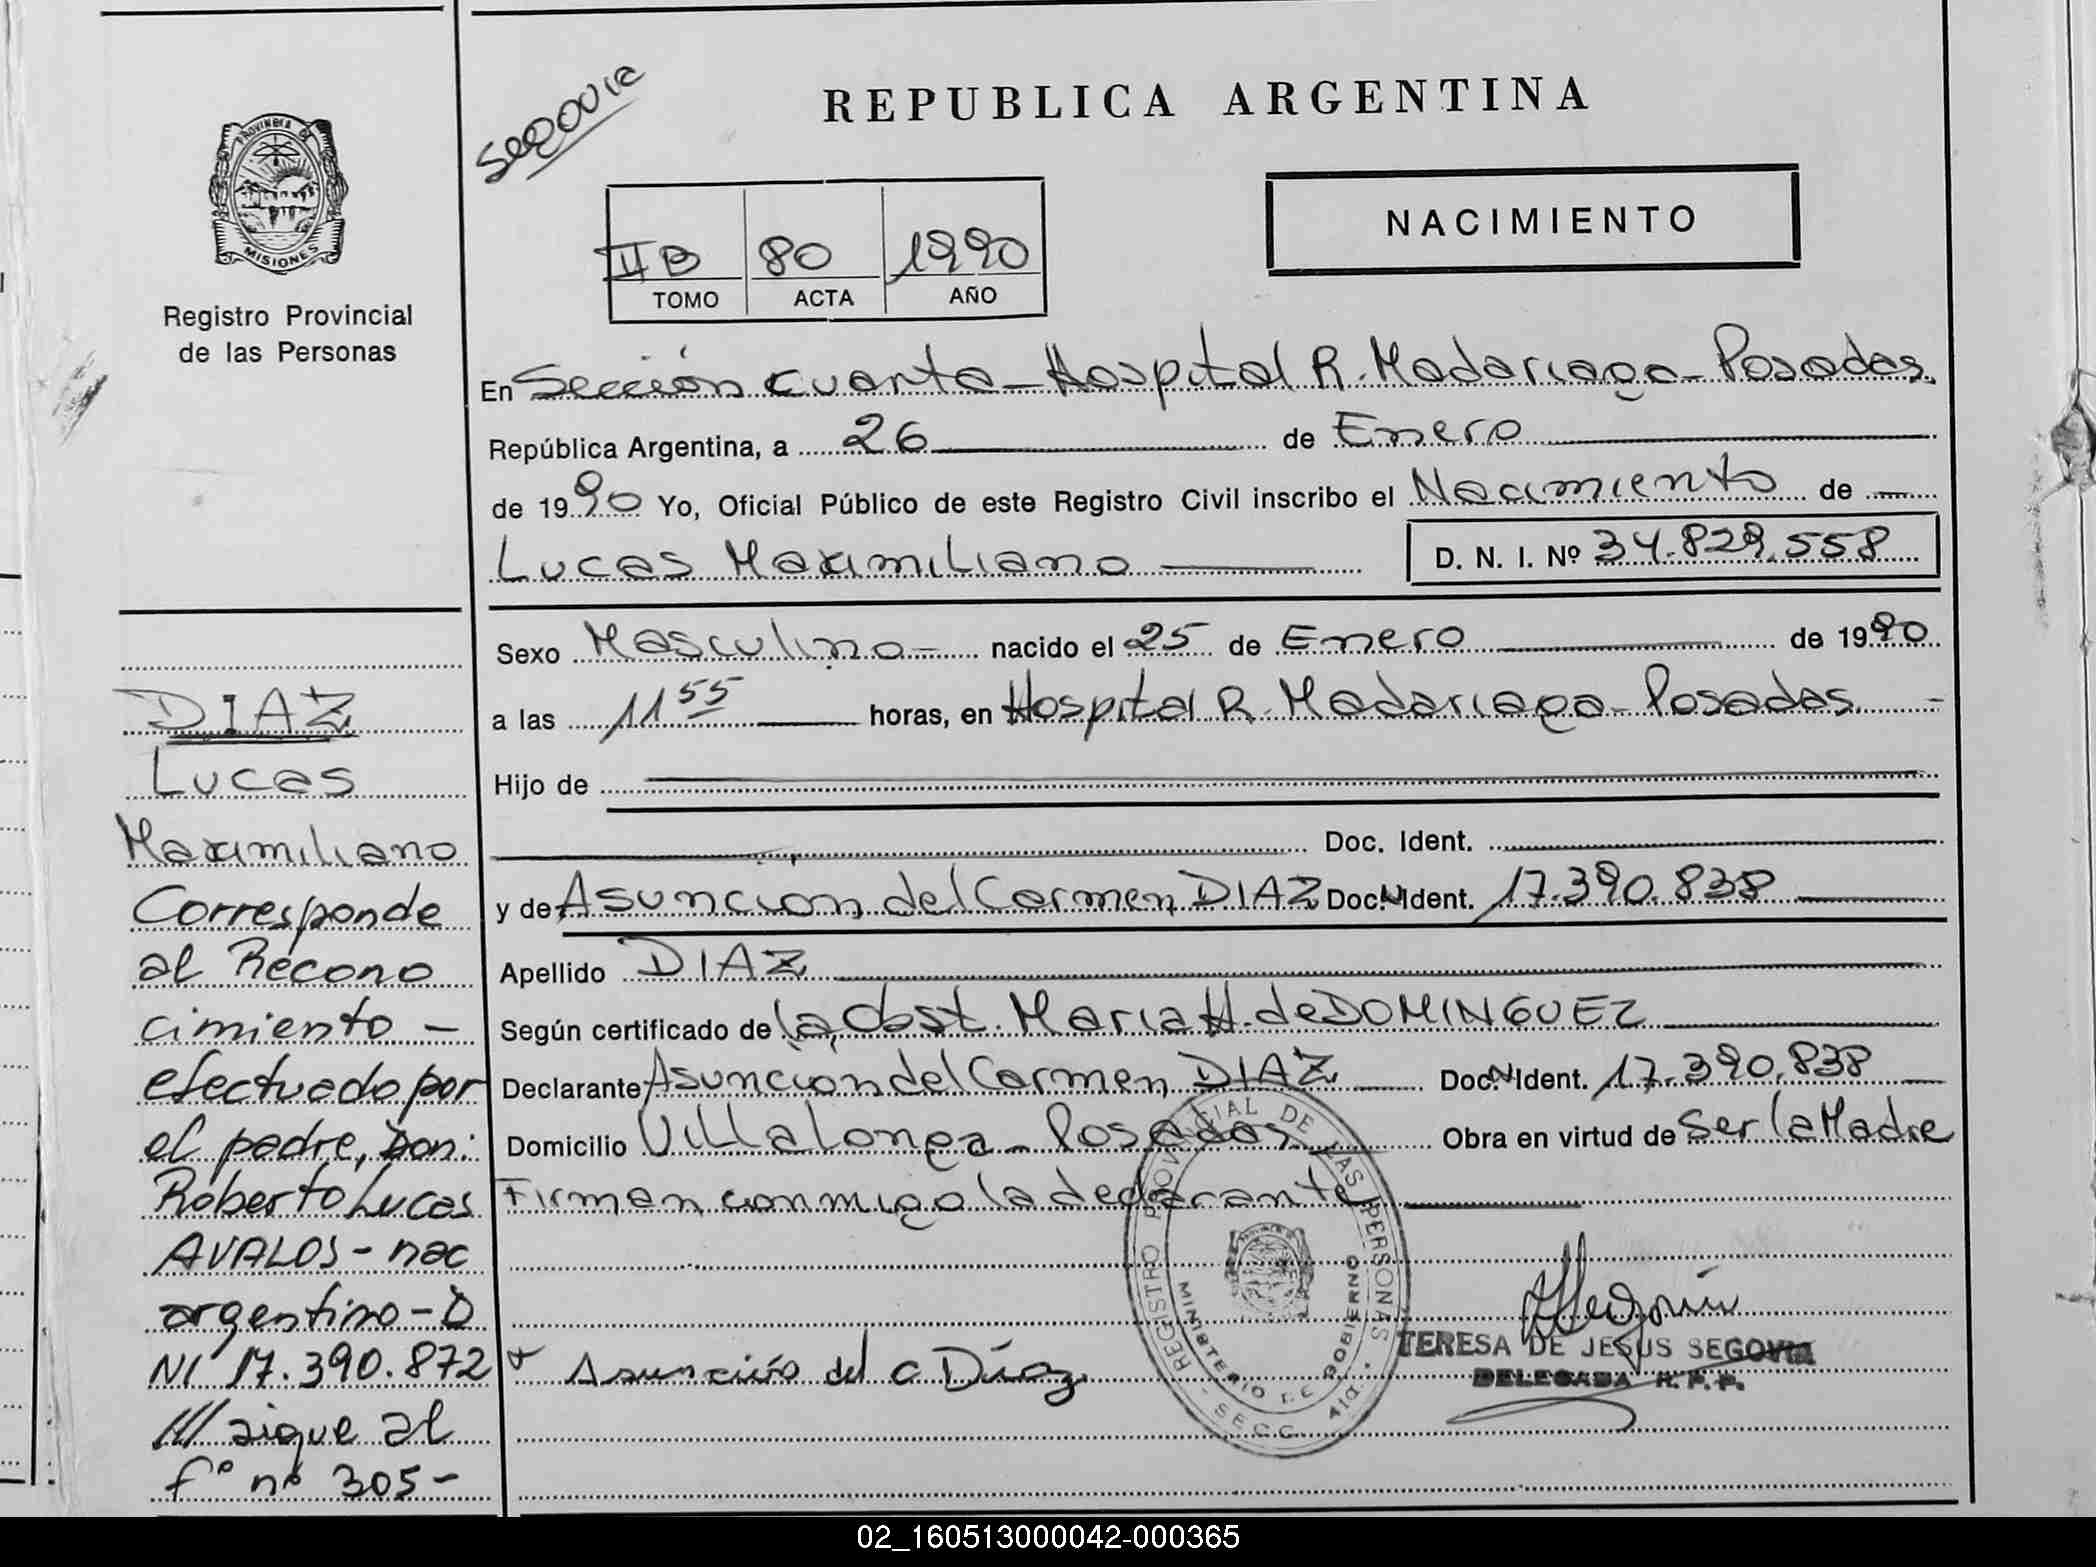 PROVINCIA DE
MISIONES
Registro Provincial
de las Personas
DIAZ
Lucas
Maximiliano
Corresponde
al Recono
cimiento -
efectuado por
el padre, Don:
Roberto Lucas
AVALOS - nac
argentino - D
NI 17.390.872
/// sigue al
fº nº 305 -
Segovia
REPUBLICA ARGENTINA
II B 80 1990
TOMO ACTA AÑO
NACIMIENTO
En Sección cuarta - Hospital R. Madariaga - Posadas.
República Argentina, a 26 de Enero
de 1990 Yo, Oficial Público de este Registro Civil inscribo el Nacimiento de
Lucas Maximiliano D. N. I. Nº 34.829.558
Sexo Masculino - nacido el 25 de Enero de 1990
a las 11 55 horas, en Hospital R. Madariaga - Posadas. -
Hijo de
Doc. Ident.
y de Asunción del Carmen DIAZ Doc. N Ident. 17.390.838
Apellido DIAZ
Según certificado de la Obst. Maria H. de DOMINGUEZ
Declarante Asunción del Carmen DIAZ Doc. N Ident. 17.390.838
Domicilio Villalonga - Posadas Obra en virtud de Ser la Madre
Firman conmigo la declarante
Asunción del C Díaz
REGISTRO PROVINCIAL DE LAS PERSONAS
MINISTERIO DE GOBIERNO
- SECC. 4ta. -
TERESA DE JESUS SEGOVIA
DELEGADA R. P. P.
02_160513000042-000365